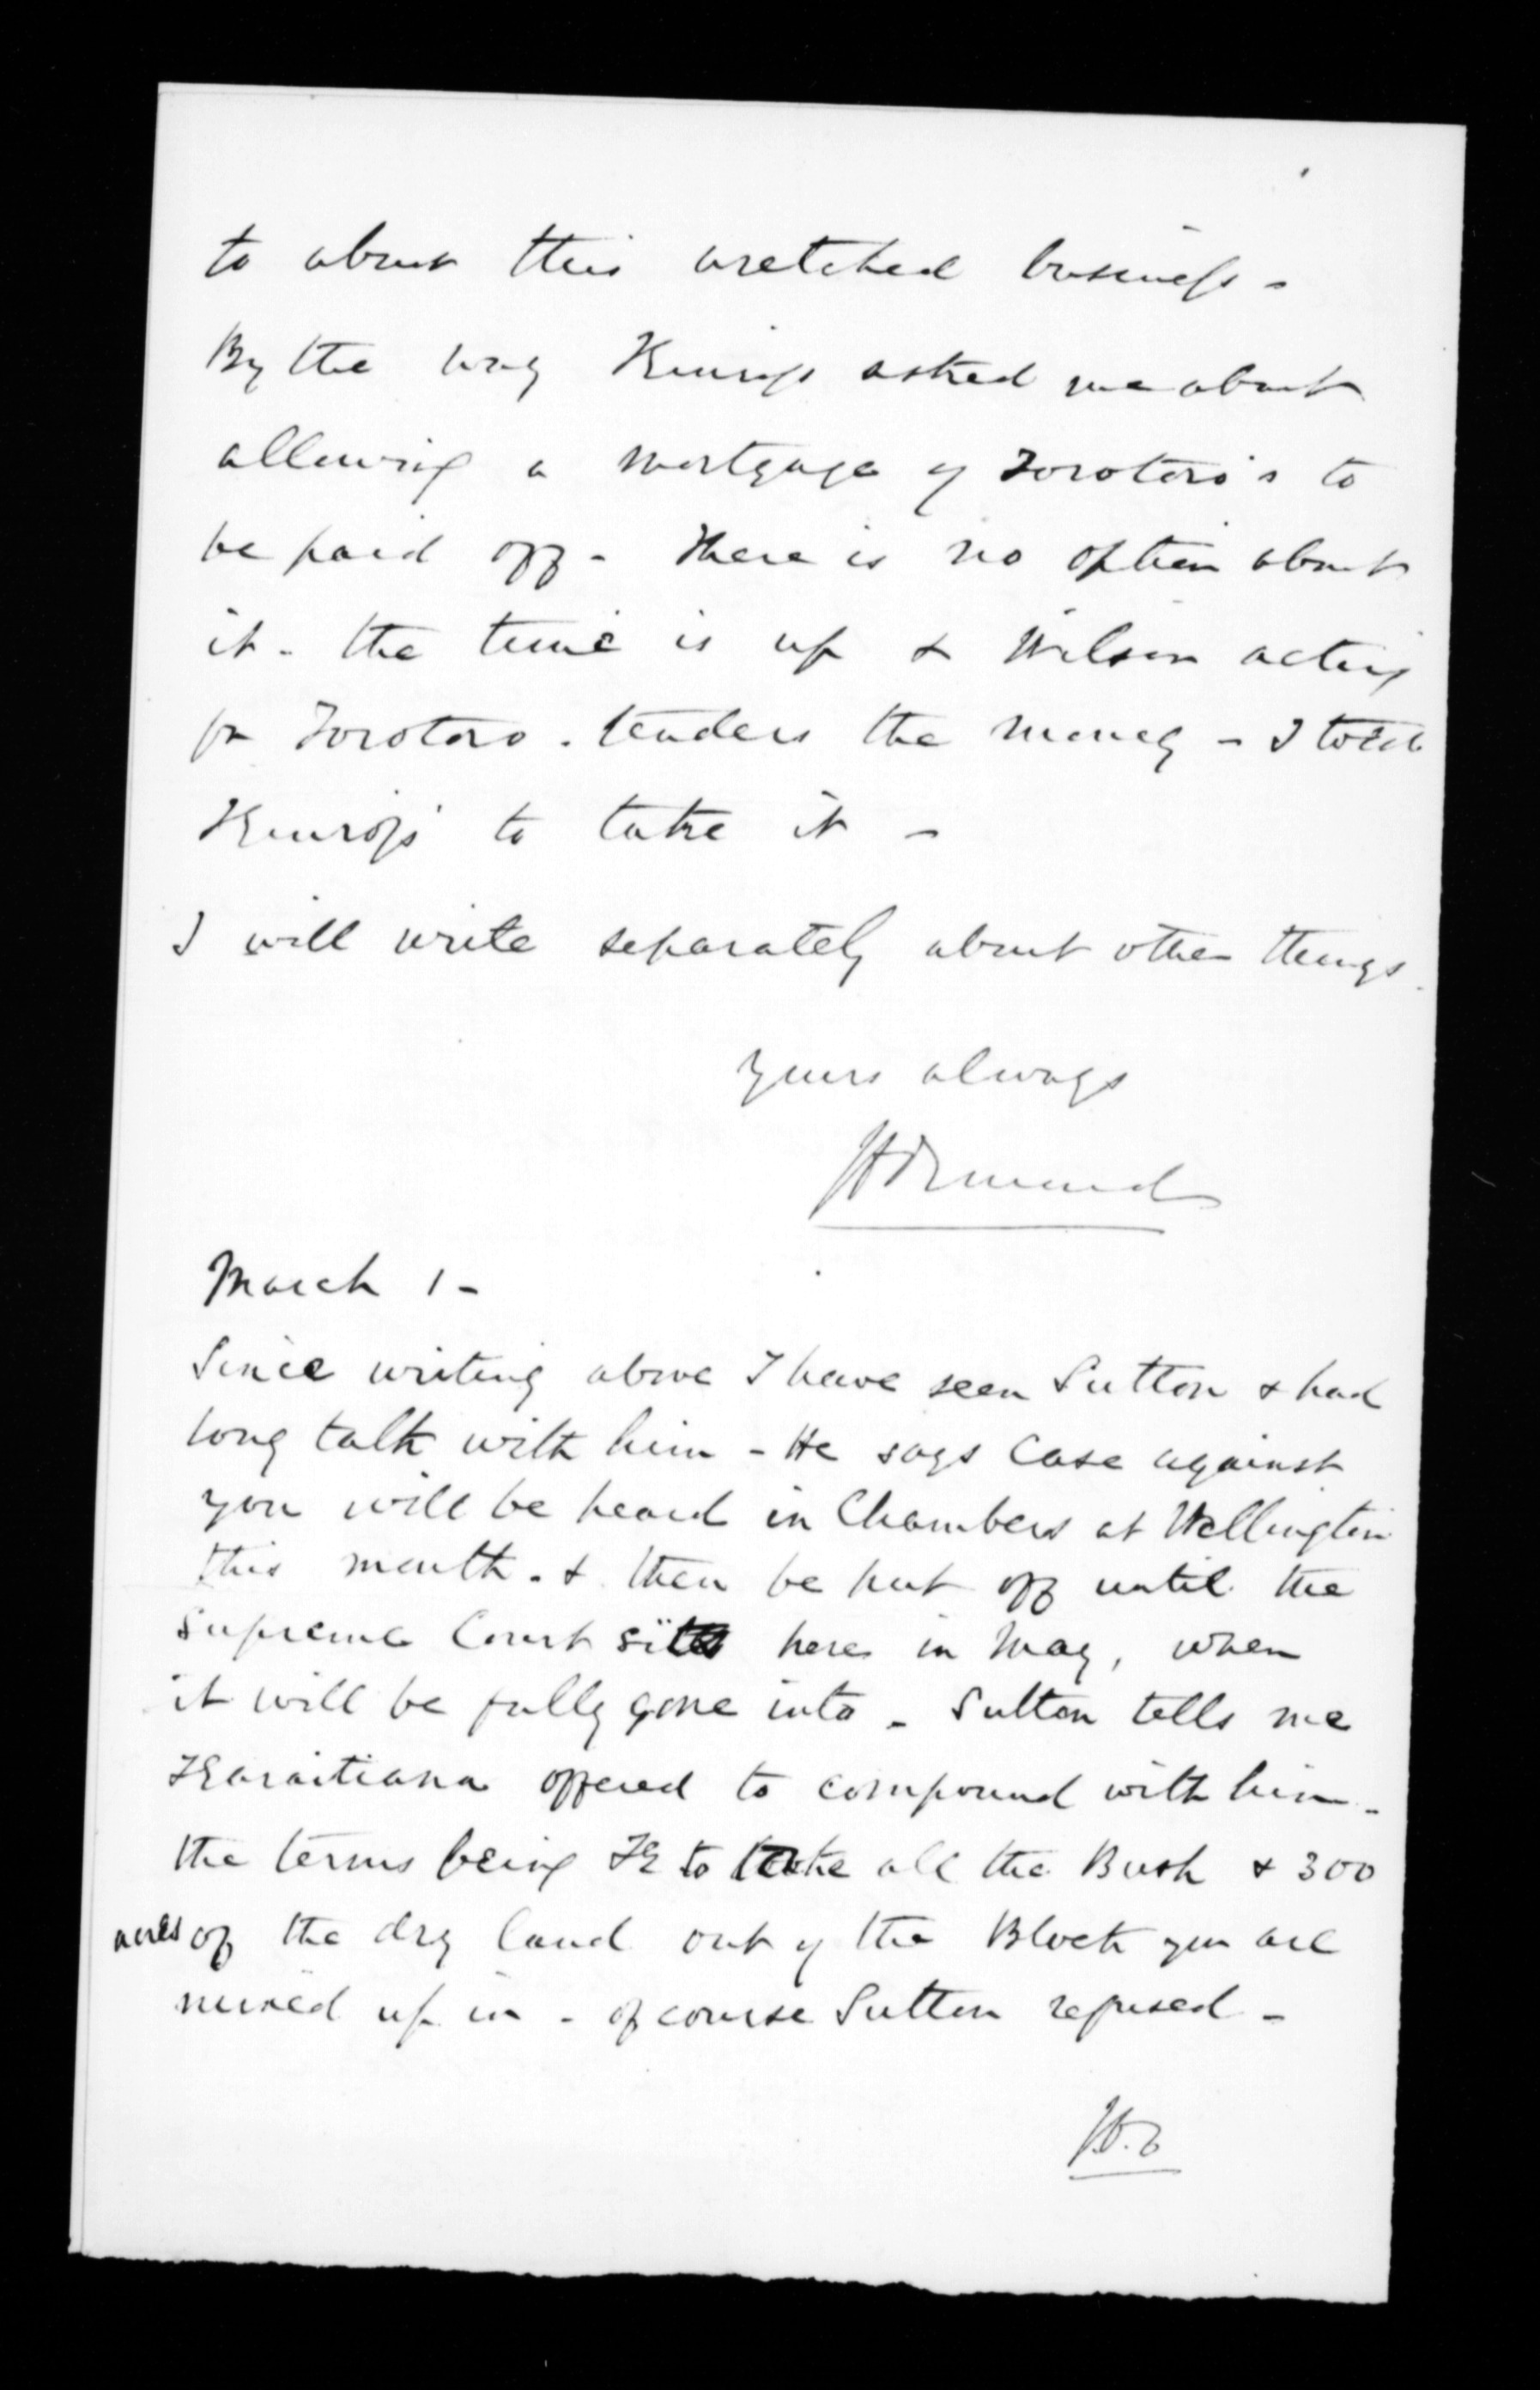 to about this wretched business -
By the way Kinross asked me about
allowing a mortgage of Torotoro's to
be paid off - There is no option about
it - the time is up & Wilson acting
for Torotoro - tenders the money - I told
Kinross to take it -
I will write separately about other things.
Yours always
JD Ormond
March 1 -
Since writing above I have seen Sutton & had
long talk with him - He says Case against
you will be heard in Chambers at Wellington
this month - & then be put off until the
Supreme Court sits here in May, when
it will be fully gone into - Sutton tells me
Karaitiana offered to compound with him -
the terms being K to take all the Bush & 300
acres of the dry land out of the Block you are
mixed up in - of course Sutton refused -
J.D.O